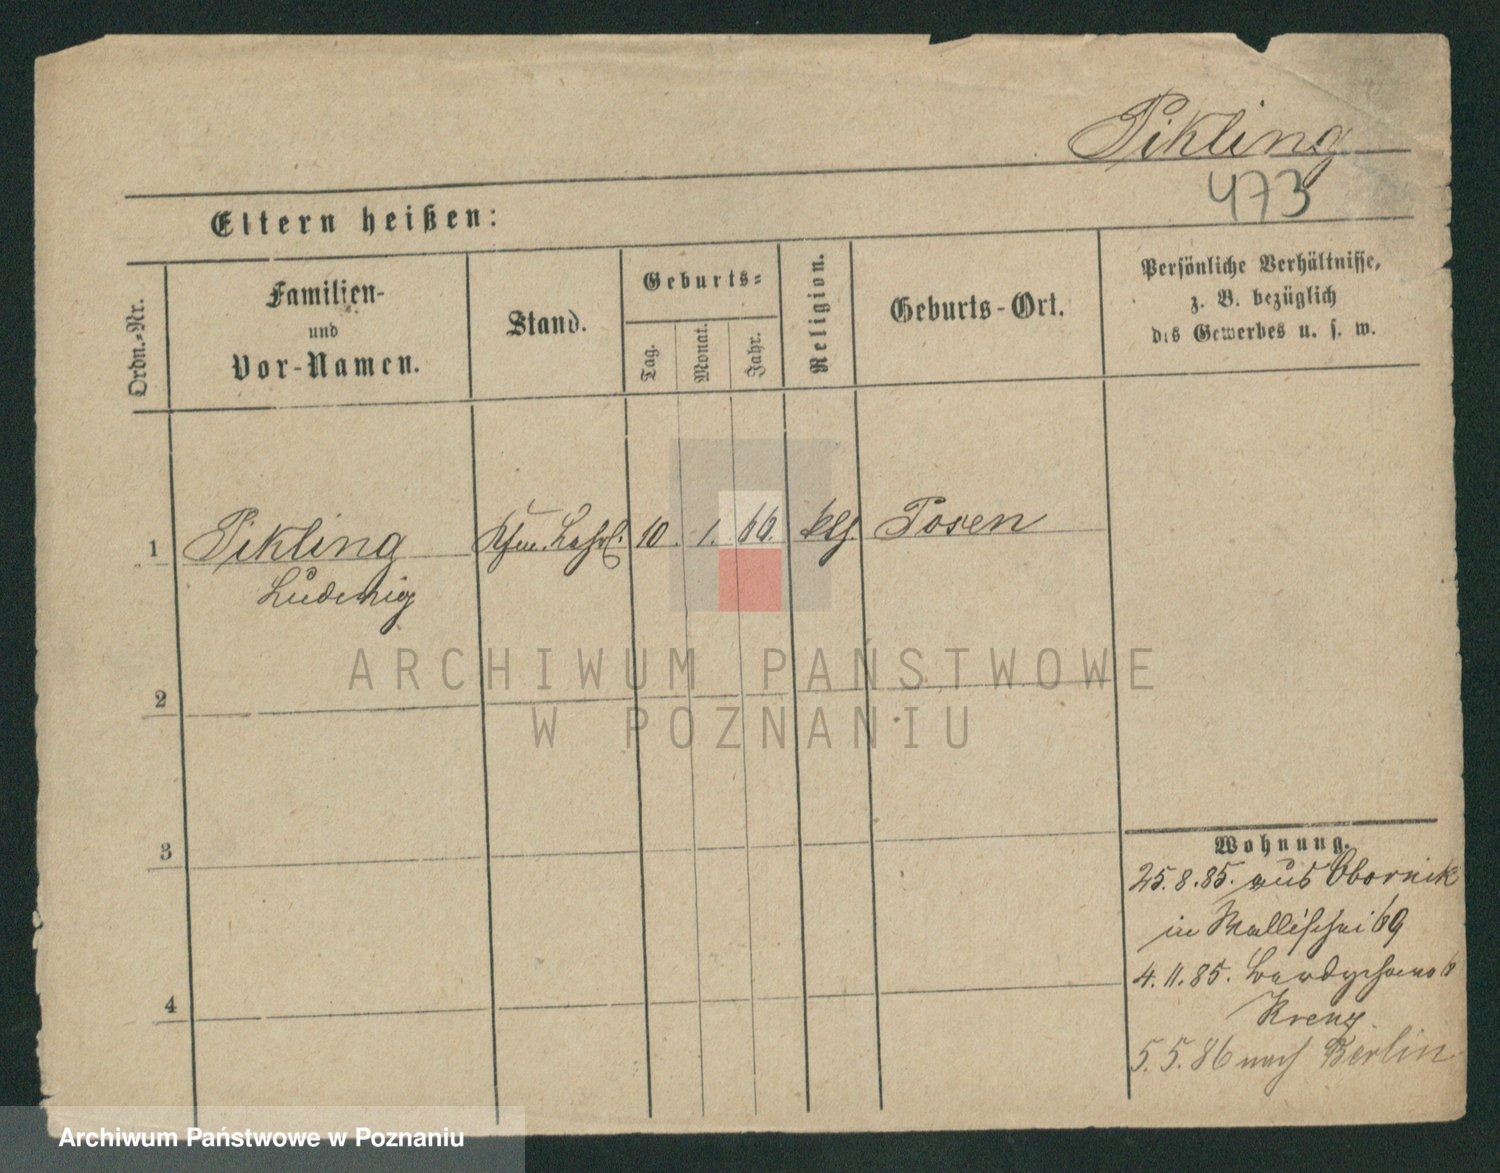 Pikling
473
Eltern heißen:
Ordn.-Nr.
Familien-
und
Vor-Namen.
Stand.
Geburts-
Tag.
Monat.
Jahr.
Religion.
Geburts-Ort.
Persönliche Verhältnisse,
z. B. bezüglich
des Gewerbes u. s. w.
1 Pikling Kfm. Lehrl. 10. 1. 66. Posen
Ludwig
ARCHIWUM PAŃSTWOWE
W POZNANIU
2
3
4
Wohnung.
25.8.85. aus Obornik
in Wallischei 69
4.11.85.
5.5.86 nach Berlin
Archiwum Państwowe w Poznaniu